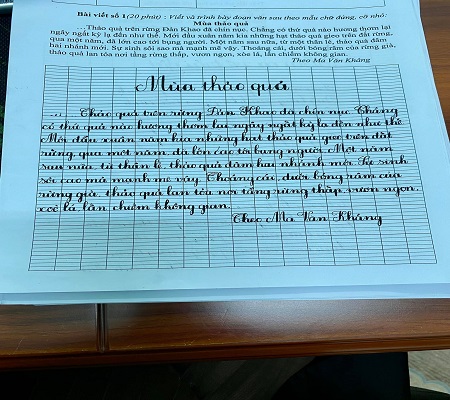 Bài viết số 1(20 phút) : Viết và trình bày đoạn văn sau theo mẫu chữ đứng, cỡ nhỏ:
Mùa thảo quả
...Thảo quả trên rừng Đản Khao đã chín nục. Chẳng có thứ quả nào hương thơm lại
ngây ngất kỳ lạ đến như thế. Mới đầu xuân năm kia những hạt thảo quả gieo trên đất rừng,
qua một năm, đã lớn cao tới bụng người. Một năm sau nữa, từ một thân lẻ, thảo quả đâm
hai nhánh mới. Sự sinh sôi sao mà mạnh mẽ vậy. Thoáng cái, dưới bóng râm của rừng già,
thảo quả lan tỏa nơi tầng rừng thấp, vươn ngọn, xòe lá, lấn chiếm không gian.
Theo Ma Văn Kháng
Mùa thảo quả
... Thảo quả trên rừng Đản Khao đã chín nục. Chẳng
có thứ quả nào hương thơm lại ngây ngất kỳ lạ đến như thế.
Mới đầu xuân năm kia những hạt thảo quả gieo trên đất
rừng, qua một năm, đã lớn cao tới bụng người. Một năm
sau nữa, từ thân lẻ, thảo quả đâm hai nhánh mới. Sự sinh
sôi sao mà mạnh mẽ vậy. Thoáng cái, dưới bóng râm của
rừng già, thảo quả lan tỏa nơi tầng rừng thấp, vươn ngọn,
xoè lá, lấn chiếm không gian.
Theo Ma Văn Kháng